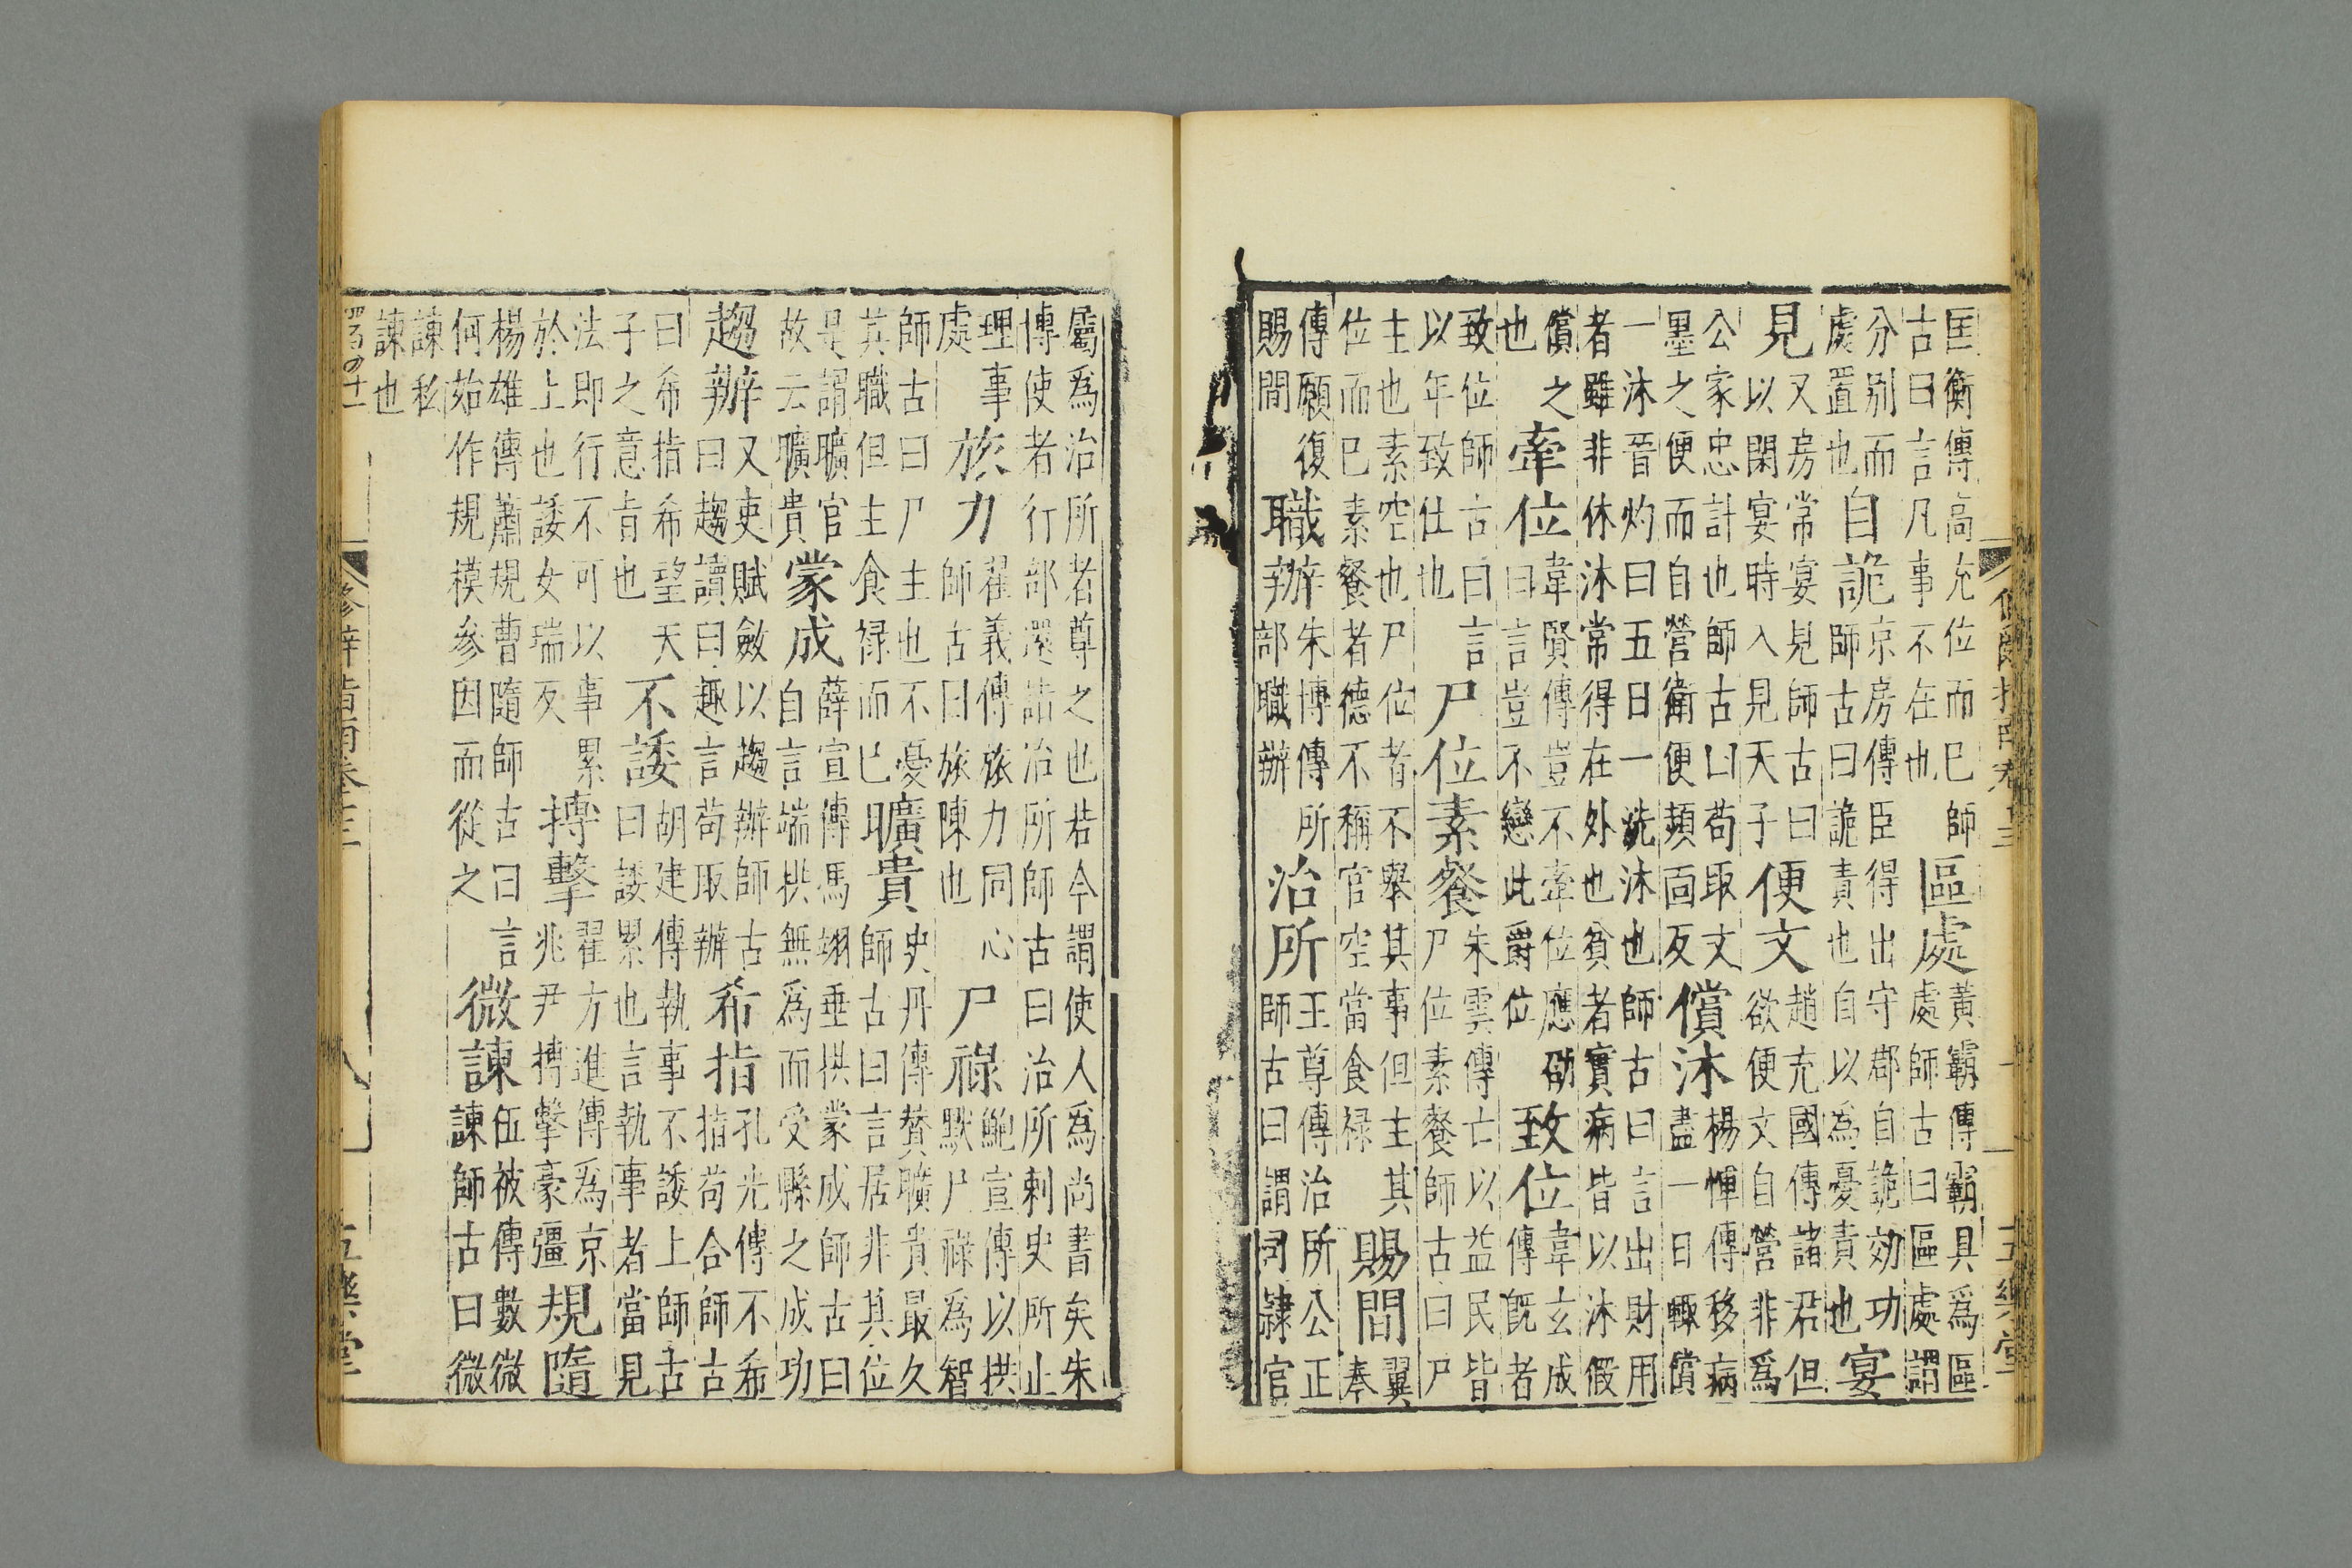 匡衡傳高允位而巳師
古曰言凡事不在也
區處
黃霸傳霸具為區
處師古曰區處謂
分别而
處置也
自詭
京房傳臣得出守郡自詭効功
師古曰詭責也自以為憂責也
宴
見
又房常宴見師古曰
以閑宴時入見天子
便文
趙充國傳諸君但
欲便文自營非為
公家忠計也師古曰苟取文
墨之便而自營衛便頻面反
償沐
楊惲傳移病
盡一日輙償
一沐晉灼曰五日一洗沐也師古曰言出財用
者雖非休沐常得在外也貧者實病皆以沐假
償之
也
牽位
韋賢傳豈不牽位應劭
曰言豈不戀此爵位
致位
韋玄成
傳既者
致位師古曰言
以年致仕也
尸位素餐
朱雲傳亡以益民皆
尸位素餐師古曰尸
主也素空也尸位者不舉其事但主其
位而已素餐者德不稱官空當食禄
賜間
翼
奉
傳願復
賜間
職辦
朱博傳所
部職辦
治所
王尊傳治所公正
師古曰謂司隸官
屬為治所者尊之也若今謂使人為尚書矣朱
博使者行部還詣治所師古曰治所刺史所止
理事
處
旅力
翟義傳旅力同心
師古曰旅陳也
尸祿
鮑宣傳以拱
默尸祿為智
師古曰尸主也不憂
其職但主食禄而巳
曠貴
史丹傳贊曠貴最久
師古曰言居非其位
是謂曠官
故云曠貴
蒙成
薛宣傳馮翊垂拱蒙成師古曰
自言端拱無為而受縣之成功
趨辦
又吏賦斂以趨辦師古
曰趨讀曰趣言苟取辦
希指
孔光傳不希
指苟合師古
曰希指希望天
子之意旨也
不諉
胡建傳執事不諉上師古
曰諉累也言執事者當見
法即行不可以事累
於上也諉女瑞反
搏擊
翟方進傳為京
兆尹搏擊豪彊
規隨
楊雄傳蕭規曹隨師古曰言
何始作規模參因而從之
微諫
伍被傳數微
諫師古曰微
諫私
諫也
修辭指南卷十三
五樂堂